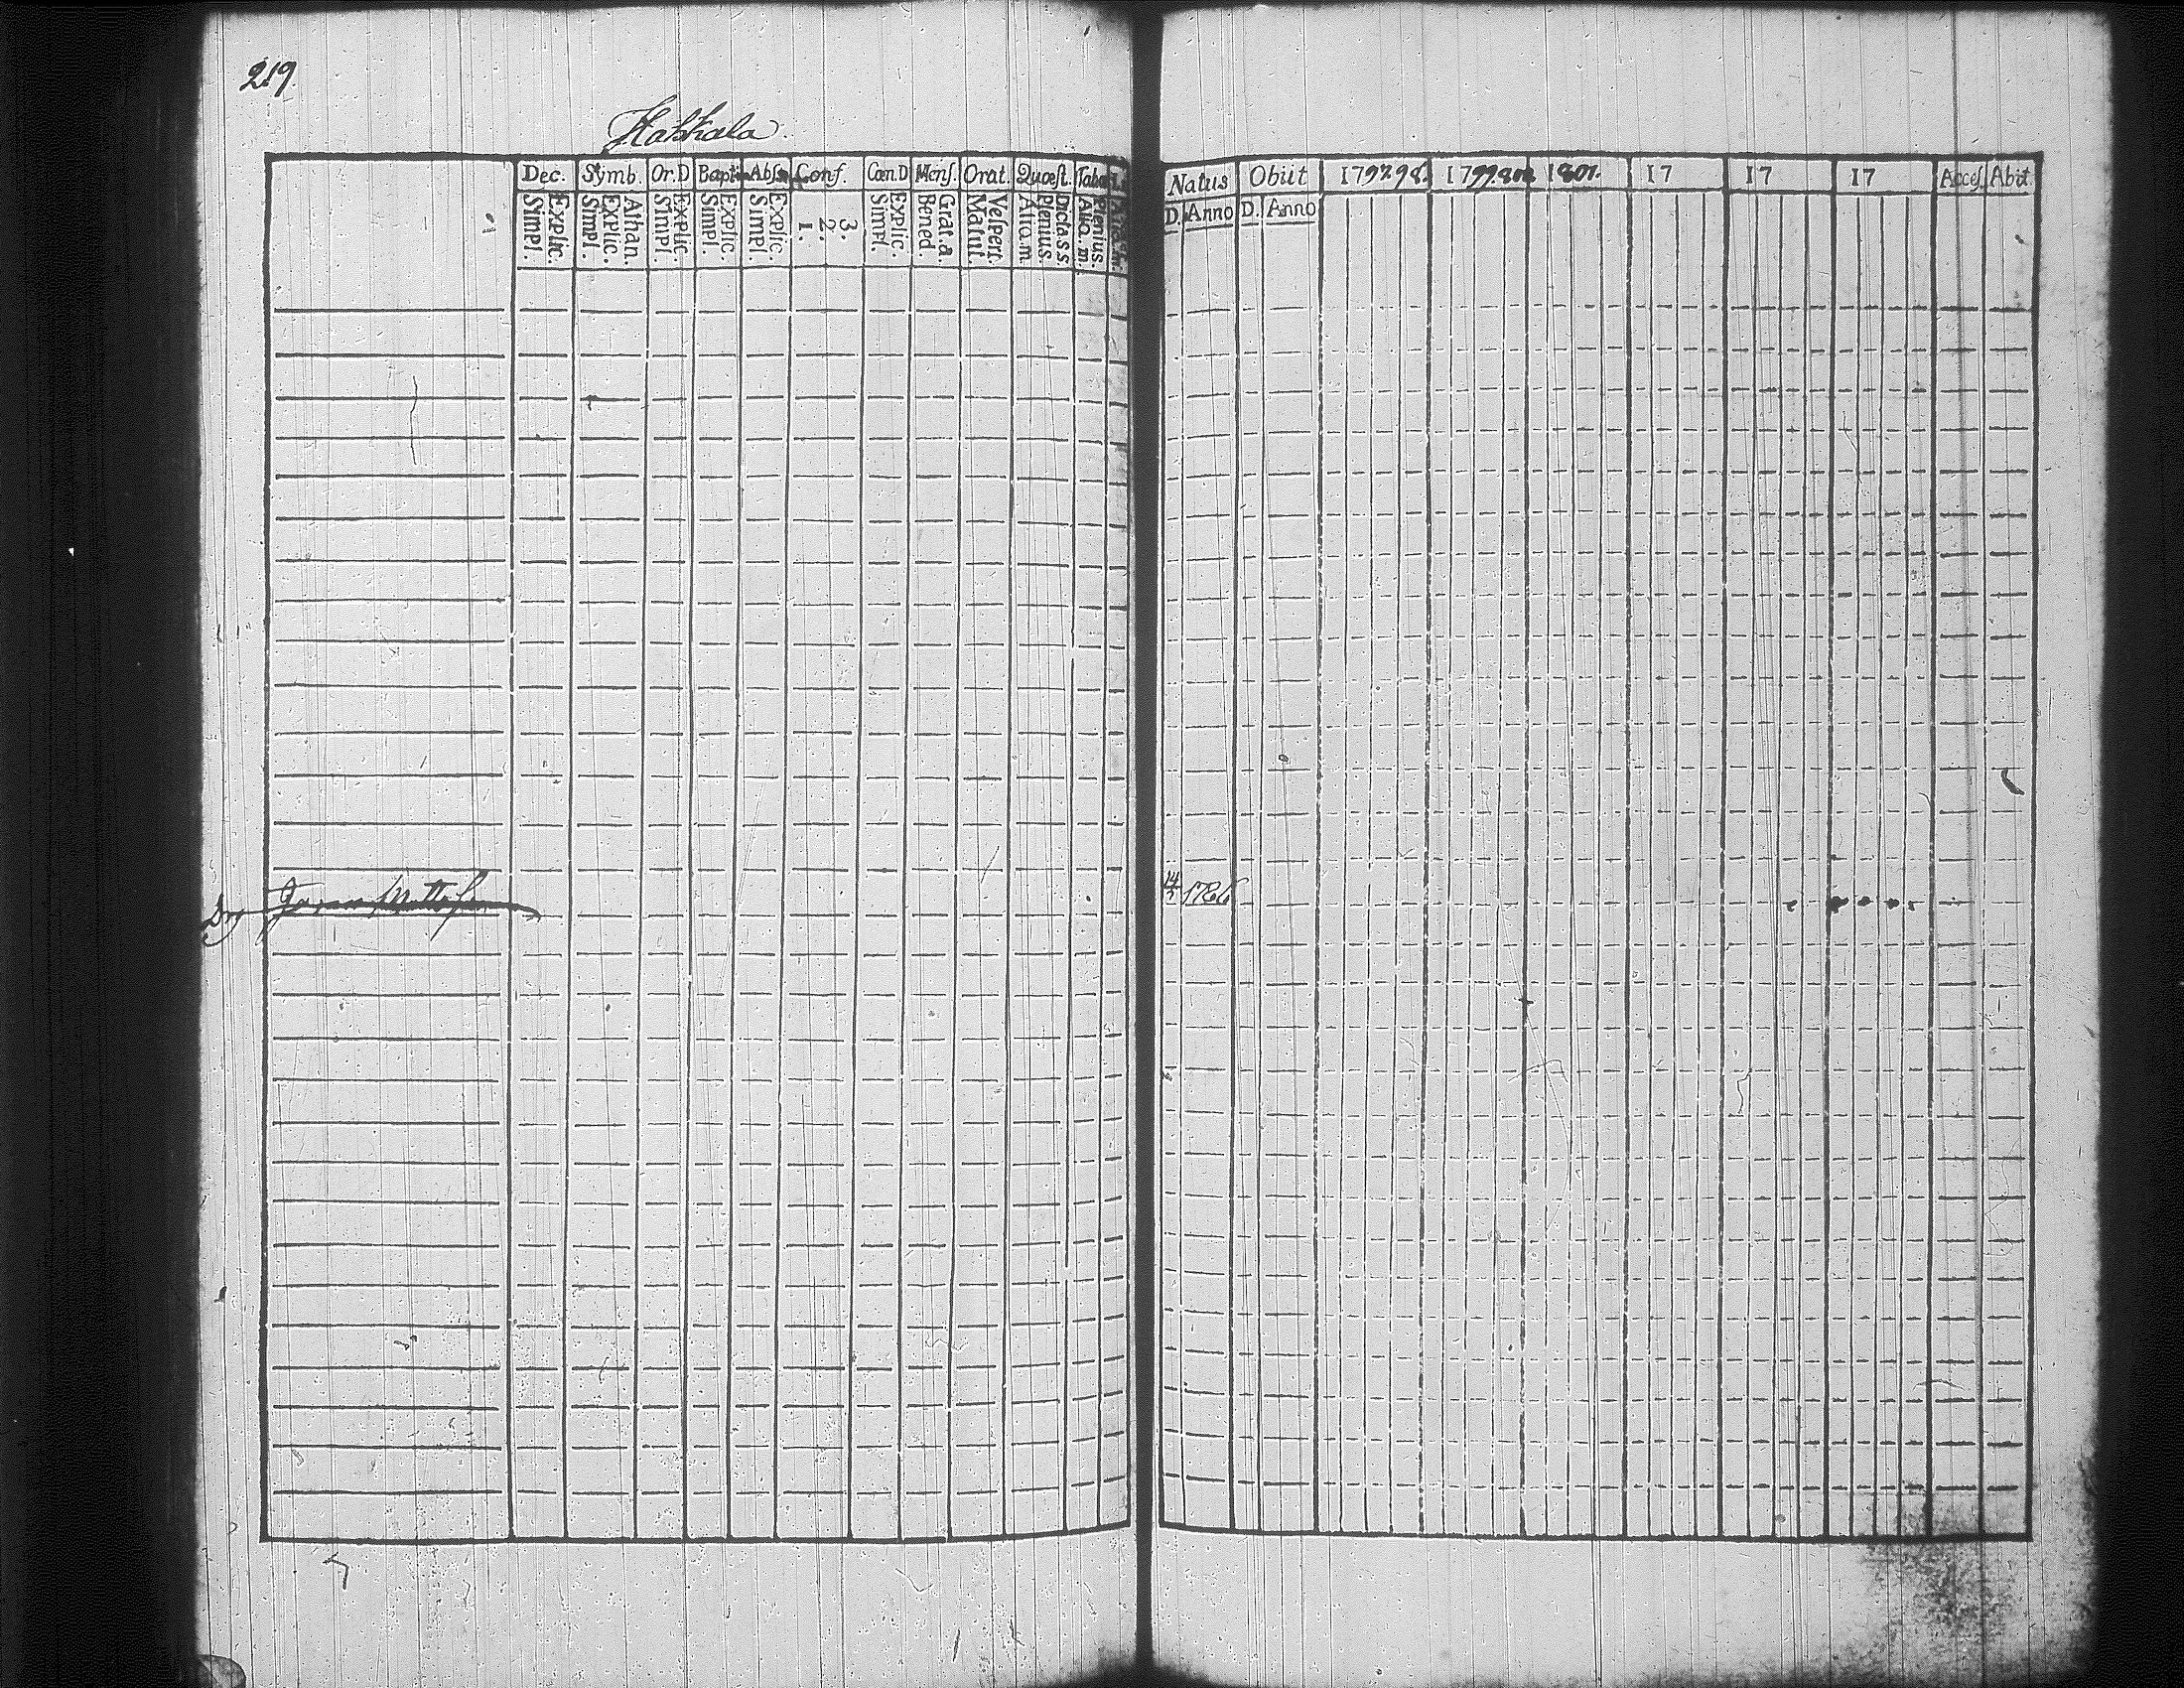 219.
Hakkala
Dec. Symb. Or. D Bapti Abso Conf. Cœn D Mens. Orat. Quæst. Taba
Simpl. Explic. Simpl. Explic. Athan. Simpl. Explic. Simpl. Explic. Simpl. Explic. 1. 2. 3. Simpl. Explic. Bened. Grat. a Matut. Vespert. Alio. m Plenius Dicta s s. Alia. m. Plenius.
Natus Obiit 1797.98. 1799.800 1801. 17 17 17 Acces. Abit
D. Anno D. Anno
Drg Johan Mattsson
14/7 1786